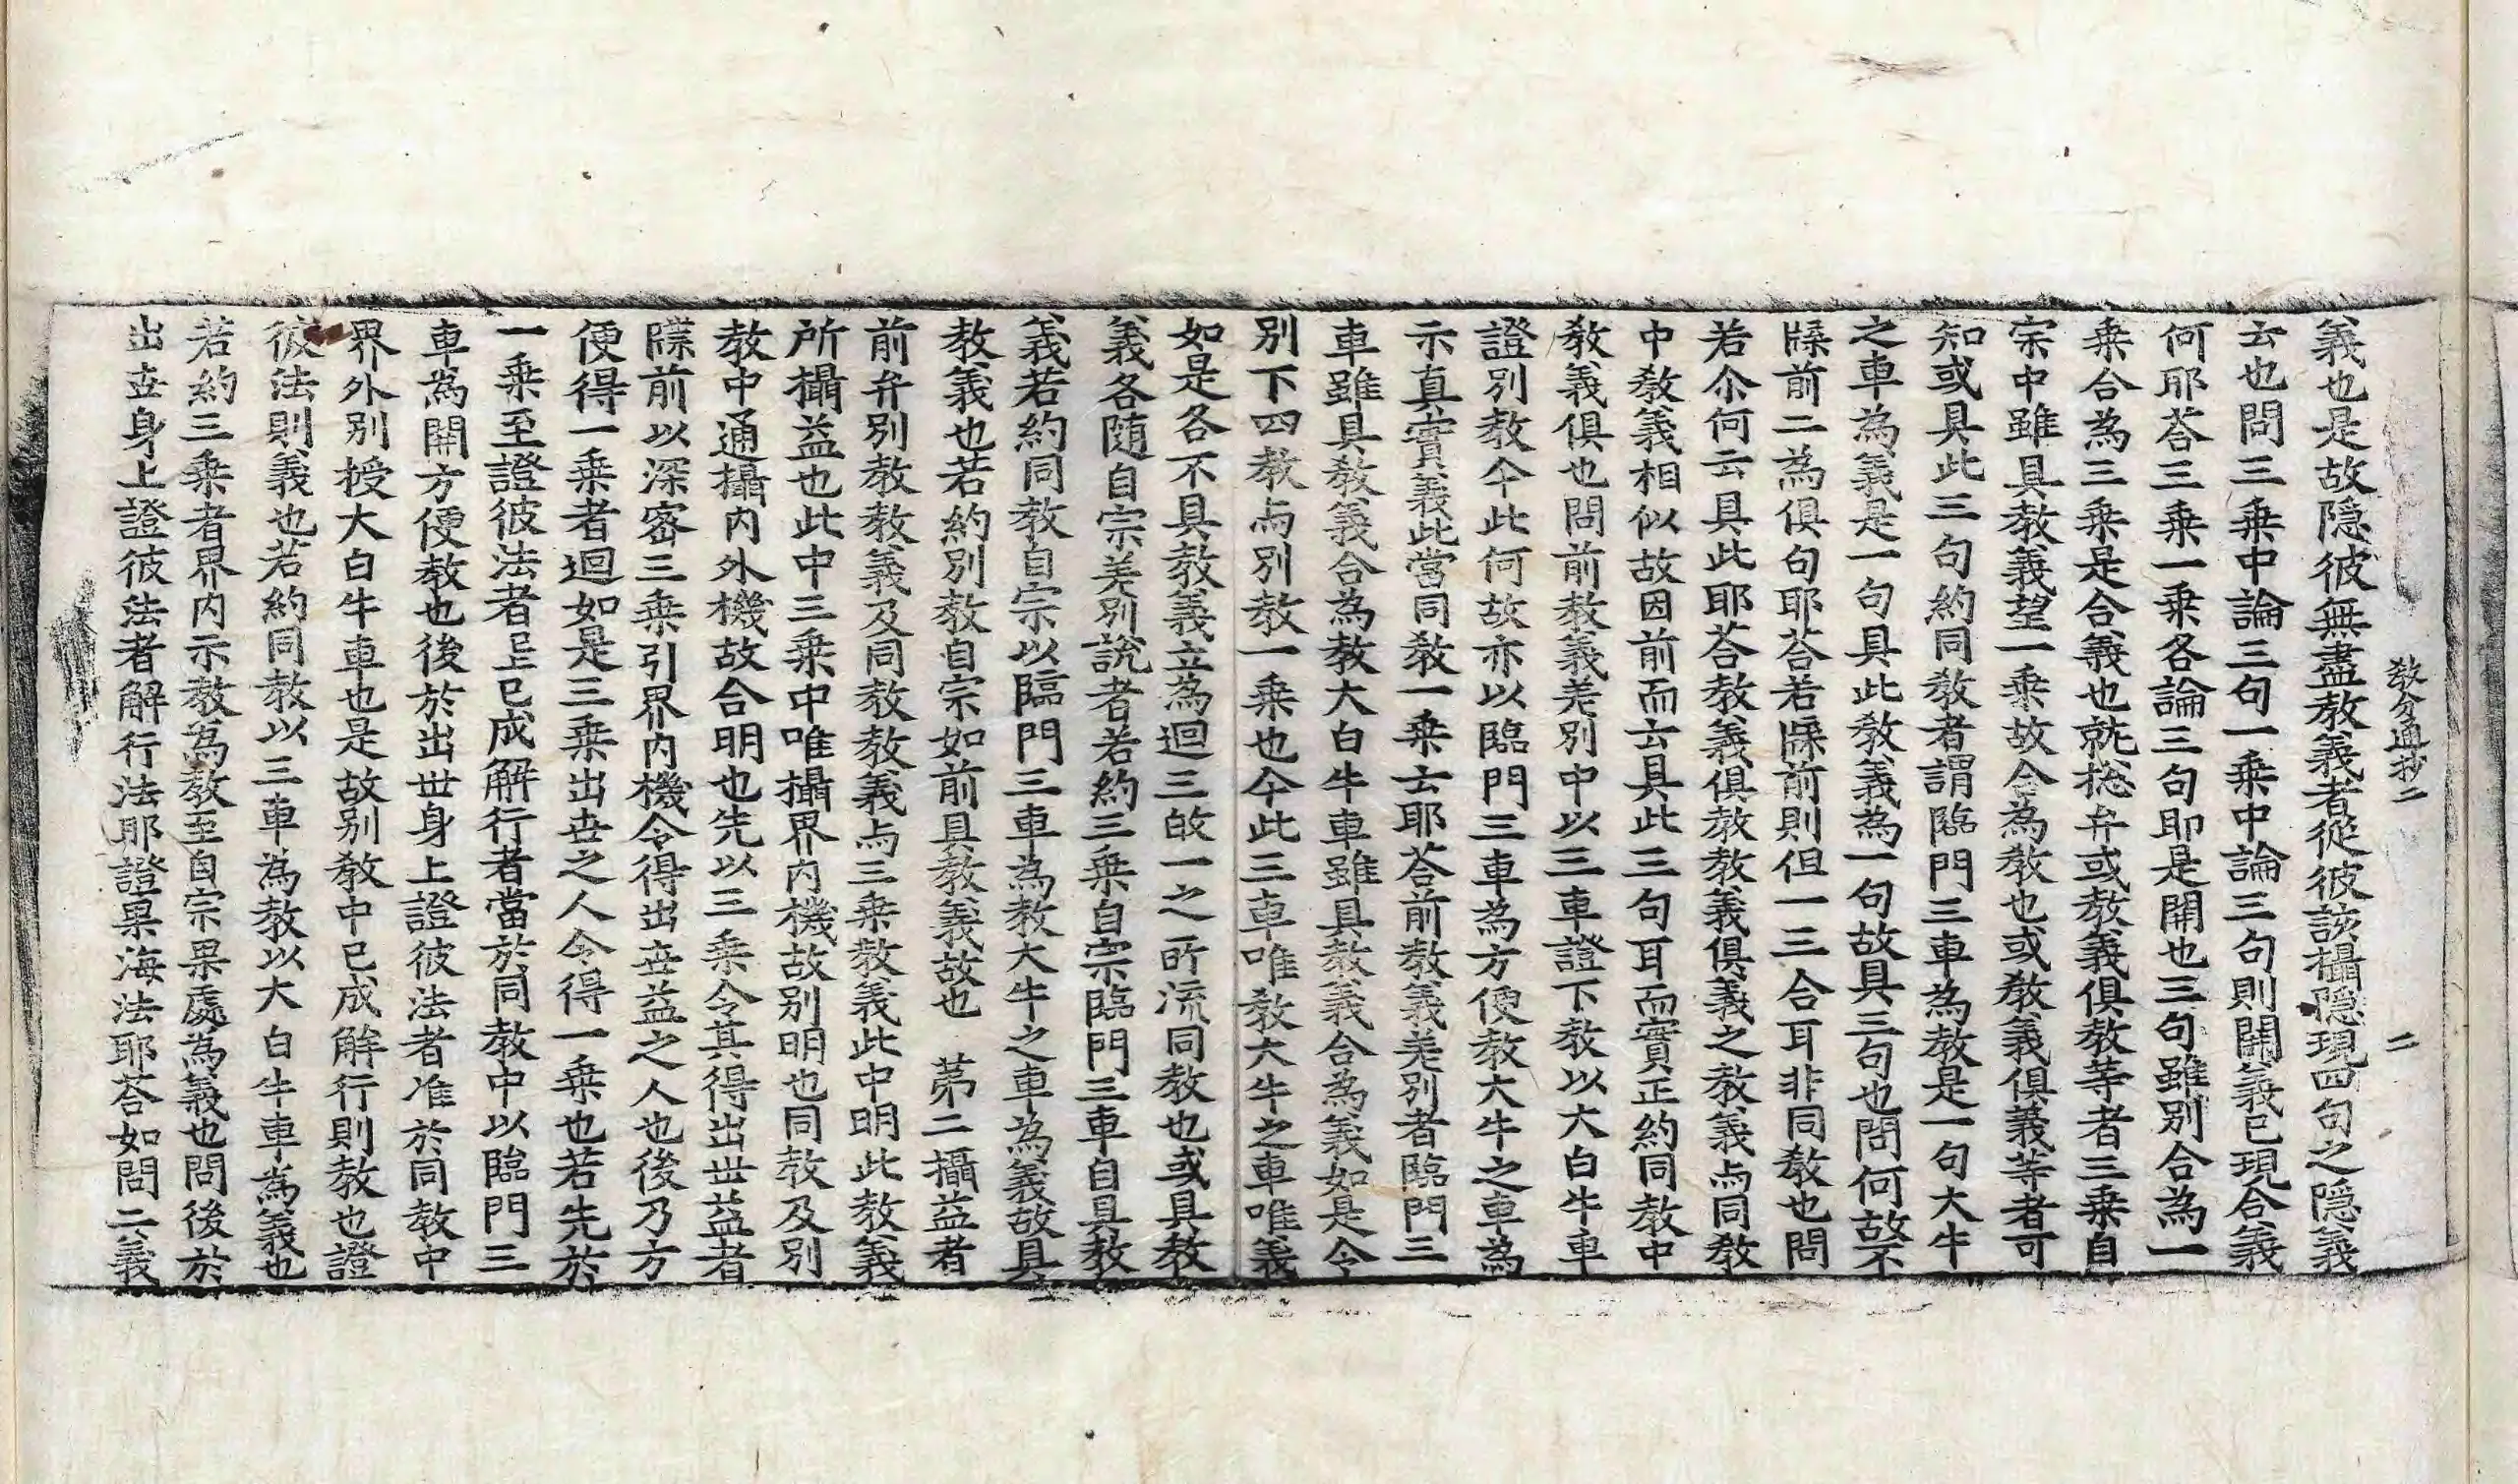 教分通抄二　二
義也是故隐彼無盡教義者從彼該攝隐現四句之隐義
云也問三乗中論三句一乗中論三句則開義已現合義
何耶荅三乗一乗各論三句即是開也三句雖別合為一
乗合為三乗是合義也就捴弁或教義俱教等者三乗自
宗中雖具教義望一乗故合為教也或教義俱義等者可
知或具此三句約同教者謂臨門三車為教是一句大牛
之車為義是一句具此教義為一句故具三句也問何故不
牒前二為俱句耶荅若牒前則但一三合耳非同教也問
若尒何云具此耶荅教義俱教教義俱義之教義与同教
中教義相似故因前而云具此三句耳而實正約同教中
教義俱也問前教義差別中以三車證下教以大白牛車
證別教今此何故亦以臨門三車為方便教大牛之車為
示真實義此當同教一乗士耶荅前教義差別者臨門三
車雖具教義合為教大白牛車雖具教義合為義如是令
別下四教与別教一乗也今此三車唯教大牛之車唯義
如是各不具教義立為迴三的一之所流同教也或具教
義各随自宗差別說者若約三乗自宗臨門三車自具教
義若約同教自宗以臨門三車為教大牛之車為義故具
教義也若約別教自宗如前具教義故也　第二攝益者
前弁別教教義及同教教義与三乗教義此中明此教義
所攝益也此中三乗中唯攝界内機故別明也同教及別
教中通攝内外機故合明也先以三乗令其得出世益者
牒前以深密三乗引界内機令得出世益之人也後乃方
便得一乗者迴如是三乗出世之人令得一乗也若先於
一乗至證彼法者已上已成解行者當於同教中以臨門三
車為開方便教也後於出世身上證彼法者准於同教中
界外別授大白牛車也是故別教中已成解行則教也證
彼法則義也若約同教以三車為教以大白牛車為義也
若約三乗者界内示教為教至自宗果處為義也問後於
出世身上證彼法者解行法耶證果海法耶荅如問二義